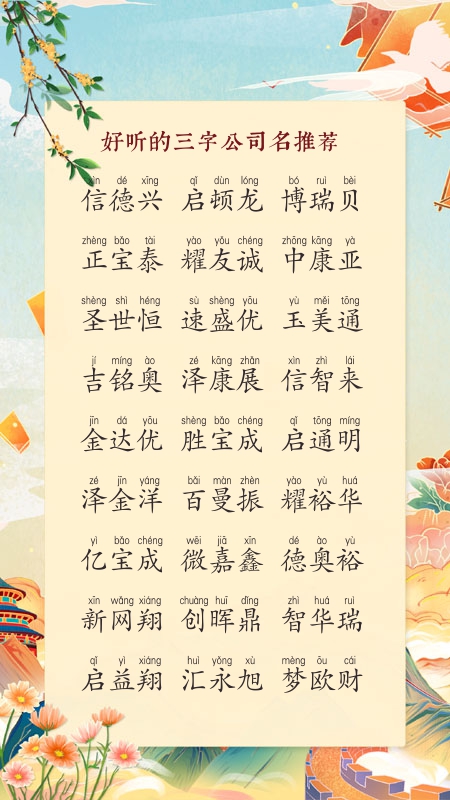 好听的三字公司名推荐
xìn dé xīng qǐ dùn lóng bó ruì bèi
信德兴 启顿龙 博瑞贝
zhèng bǎo tài yào yǒu chéng zhōng kāng yà
正宝泰 耀友诚 中康亚
shèng shì héng sù shèng yōu yù měi tōng
圣世恒 速盛优 玉美通
jí míng ào zé kāng zhǎn xìn zhì lái
吉铭奥 泽康展 信智来
jīn dá yōu shèng bǎo chéng qǐ tōng míng
金达优 胜宝成 启通明
zé jīn yáng bǎi màn zhèn yào yù huá
泽金洋 百曼振 耀裕华
yì bǎo chéng wēi jiā xīn dé ào yù
亿宝成 微嘉鑫 德奥裕
xīn wǎng xiáng chuàng huī dǐng zhì huá ruì
新网翔 创晖鼎 智华瑞
qǐ yì xiáng huì yǒng xù mèng ōu cái
启益翔 汇永旭 梦欧财